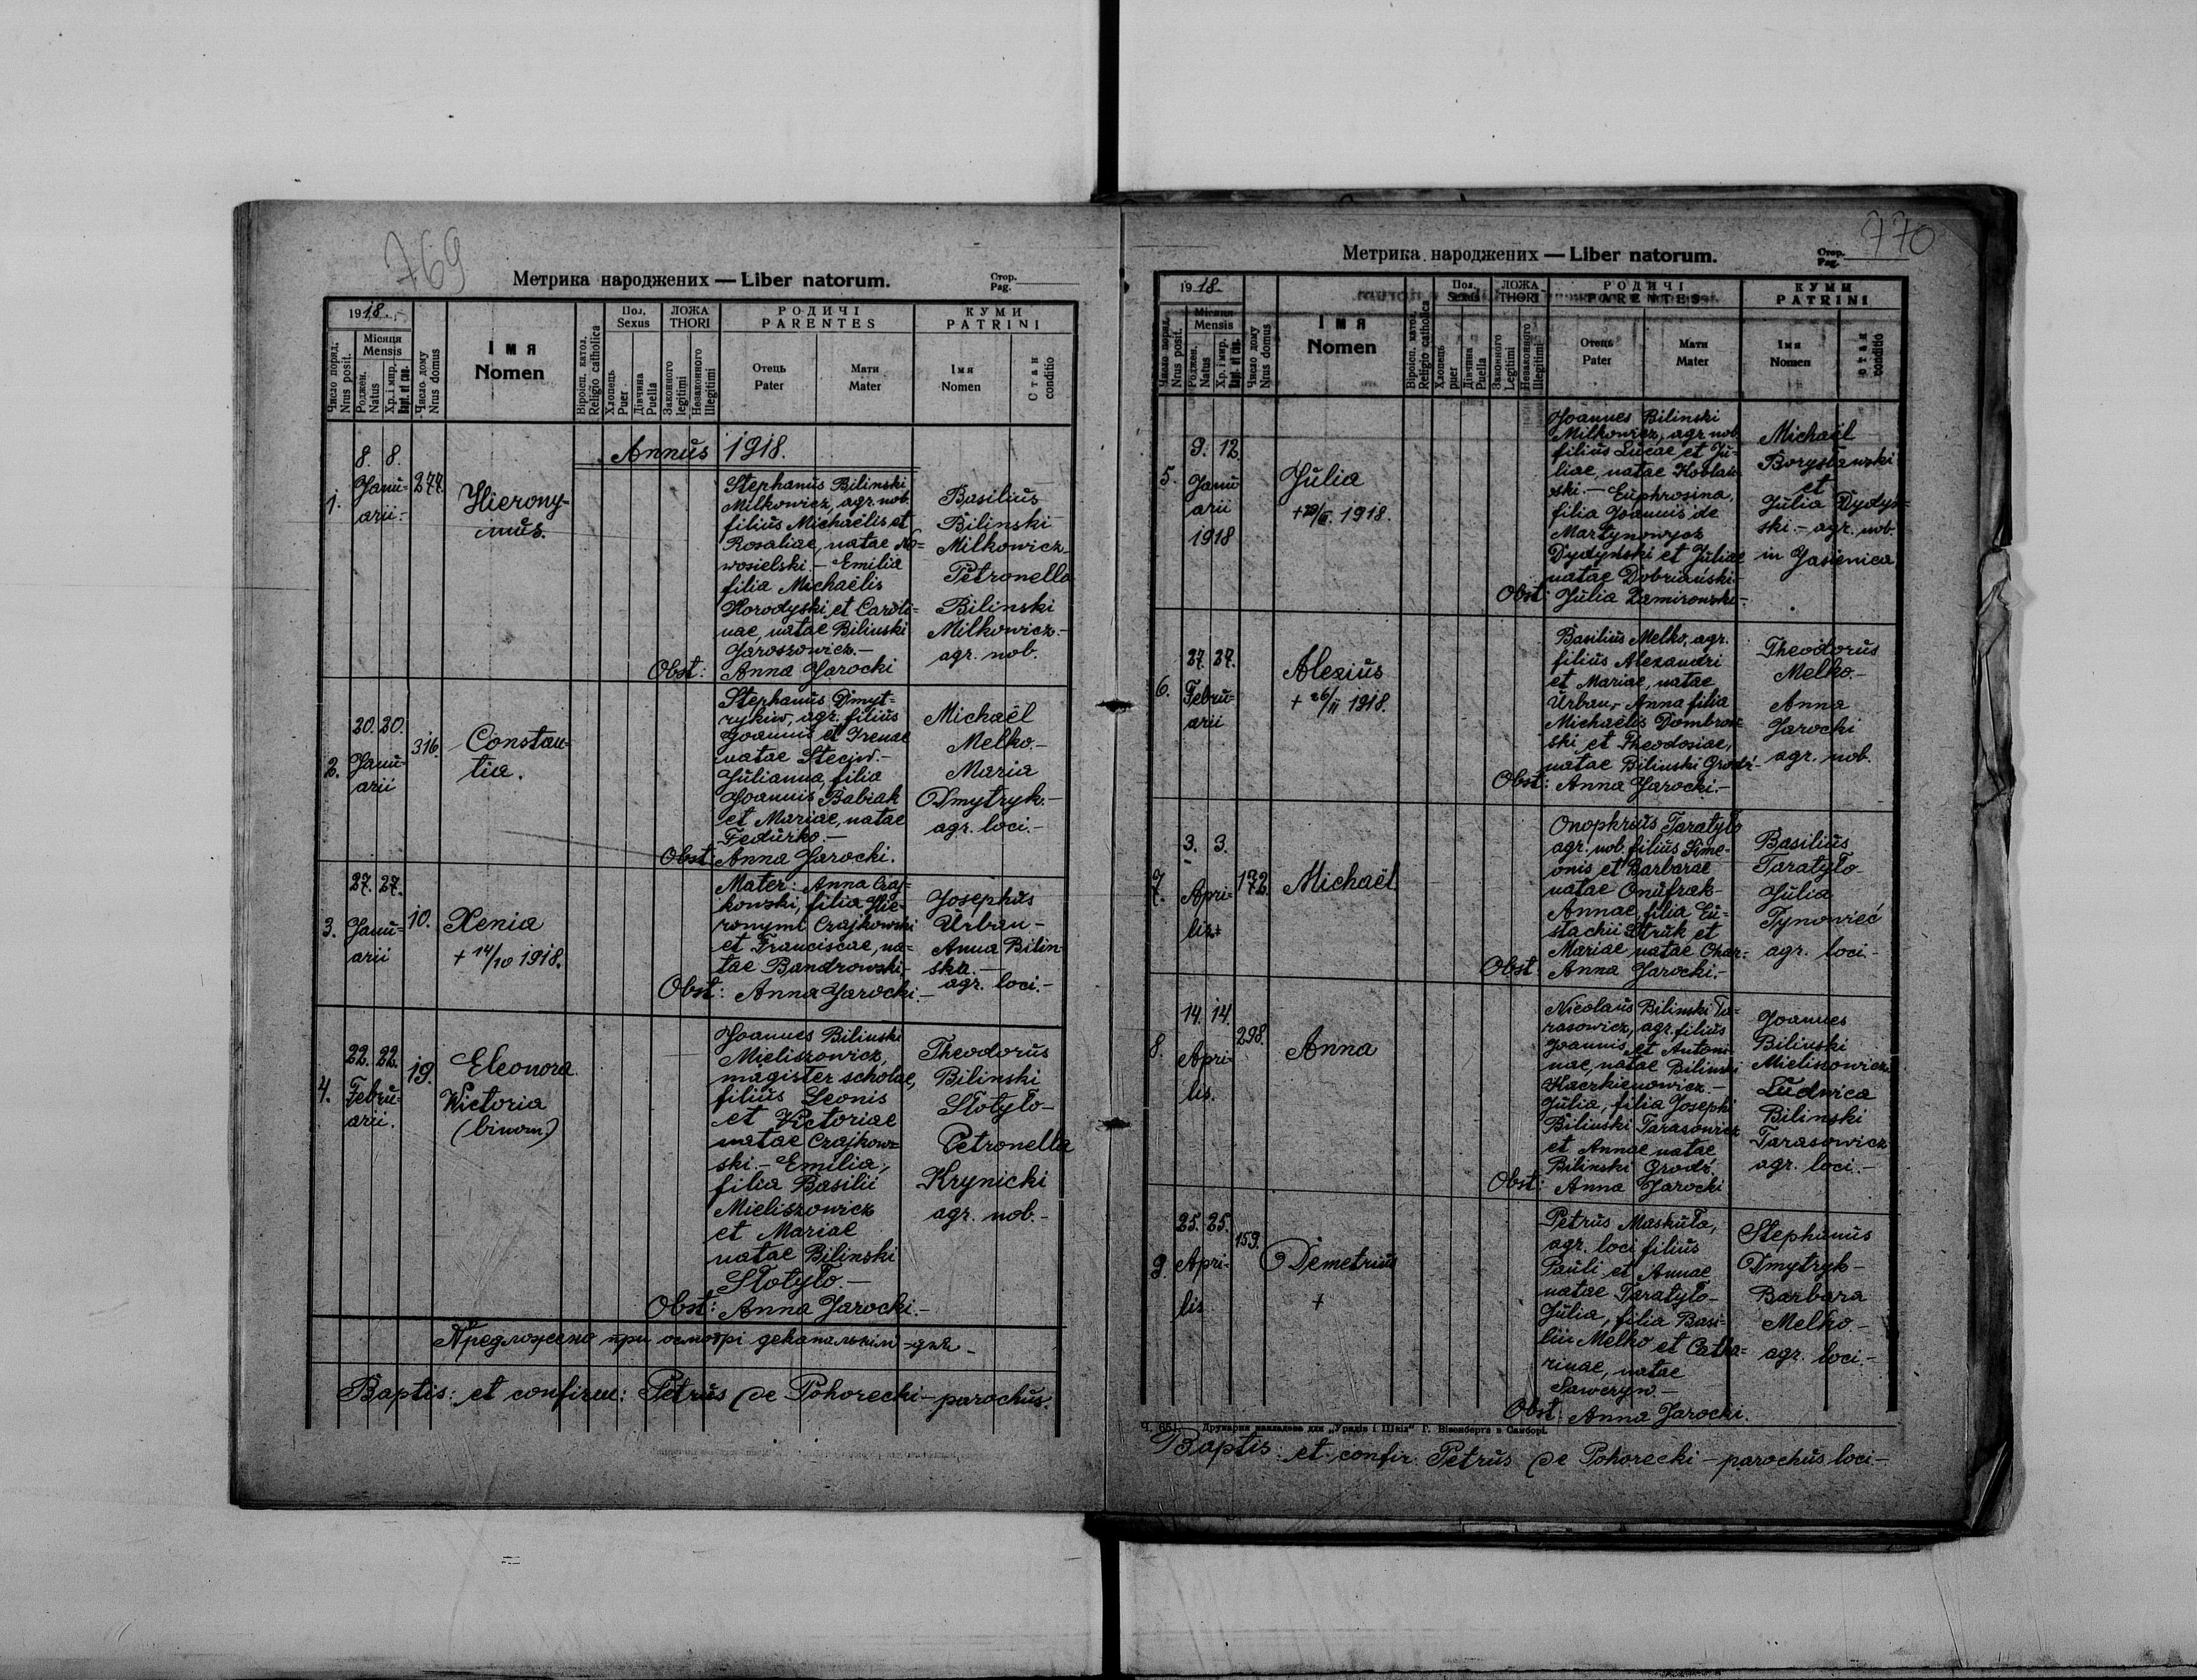 769
Метрика народжених — Liber natorum.
Стор.
Pag.
1918.
Число поряд.
Nrus posit.
Місяця
Mensis
Роджен.
Natus
Хр. і мир.
Число дому
Nrus domus
ІМЯ
Nomen
Віроісп. катол.
Religio catholica
Пол.
Sexus
Хлопець
Puer
Дівчина
Puella
ЛОЖА
THORI
Законного
legitimi
Незаконного
Illegitimi
РОДИЧІ
PARENTES
Отець
Pater
Мати
Mater
КУМИ
PATRINI
Імя
Nomen
Стан
conditio
Annus 1918.
1.
8. 8.
Janu-
arii.-
277.
Hierony-
mus.
Stephanus Bilinski
Milkowicz, agr. nob.
filius Michaëlis et
Rosaliae, natae No-
wosielski.- Emilia
filia Michaëlis
Horodyski et Caroli-
nae, natae Bilinski
Jaroszowicz.-
Obst: Anna Jarocki
Basilius
Bilinski
Milkowicz-
Petronella
Bilinski
Milkowicz.-
agr. nob.
2.
20. 20.
Janu-
arii
316.
Constan-
tia.
Stephanus Dmyt-
rykiw, agr. filius
Joannis et Irenae
natae Steciw.-
Julianna, filia
Joannis Babiak
et Mariae, natae
Fedurko.-
Obst: Anna Jarocki.
Michaël
Melko.-
Maria
Dmytryk.-
agr. loci.-
3.
27. 27.
Janu-
arii
10.
Xenia
+ 14/10 1918.
Mater: Anna Czaj-
kowski, filia Hie-
ronymi Czajkowski
et Franciscae, na-
tae Bandrowski,-
Obst: Anna Jarocki.-
Josephus
Urban-
Anna Bilin-
ska.-
agr. loci.-
4.
22. 22.
Febru-
arii.
19.
Eleonora
Victoria
(binom)
Joannes Bilinski
Mieliszowicz,
magister scholae,
filius Leonis
et Victoriae
natae Czajkow-
ski.- Emilia,
filia Basilii
Mieliszowicz
et Mariae
natae Bilinski
Słotyło.-
Obst: Anna Jarocki.-
Theodorus
Bilinski
Słotyło-
Petronella
Krynicki
agr. nob.-
Предложено при осмотрі деканальнім
Baptis: et confirm: Petrus de Pohorecki-parochus.
770
Метрика народжених — Liber natorum.
Стор.
Pag.
1918.
Число поряд.
Nrus posit.
Місяця
Mensis
Роджен.
Natus
Хр. і мир.
Число дому
Nrus domus
ІМЯ
Nomen
Віроісп. катол.
Religio catholica
Пол.
Sexus
Хлопець
puer
Дівчина
Puella
ЛОЖА
THORI
Законного
Legitimi
Незаконного
Illegitimi
РОДИЧІ
PARENTES
Отець
Pater
Мати
Mater
КУМИ
PATRINI
Імя
Nomen
Стан
conditio
5.
9. 12.
Janu
arii
1918
Julia
1918.
Joannes Bilinski
Milkowicz, agr. nob.
filius Lucae et Ju-
liae, natae
ski.- Euphrosina,
filia Joannis de
Martynowycz
Dydyński et Juliae
natae Dobriański-
Obst: Julia Zamirowski-
Michaël
Borysławski
et
Julia Dydyń-
ski.- agr. nob.
in Jasienica
6.
27. 27.
Febru-
arii
Alexius
+ 26/II 1918.
Basilius Melko, agr.
filius Alexandri
et Mariae, natae
Urban,- Anna filia
Michaëlis Dombrow-
ski et Theodosiae,
natae Bilinski Grodź-
Obst: Anna Jarocki.-
Theodorus
Melko.-
Anna
Jarocki
agr. nob.
7.
3. 3.
Apri-
lis
172.
Michaël
Onophrius Taratyło
agr. nob. filius Sime-
onis et Barbarae
natae Onufrak-
Annae, filia Eu-
stachii Struk et
Mariae natae
Obst: Anna Jarocki.-
Basilius
Taratyło-
Julia
Tynowieć
agr. loci-
8.
14. 14.
Apri-
lis.
298.
Anna
Nicolaus Bilinski Ta-
rasowicz, agr. filius
Joannis et Antoni-
nae, natae Bilinski
Haczkienowicz.-
Julia, filia Josephi
Bilinski Tarasowicz
et Annae natae
Bilinski Grodź.
Obst: Anna Jarocki
Joannes
Bilinski
Mieliszowicz
Ludwica
Bilinski
Tarasowicz
agr. loci.-
9.
25. 25.
Apri-
lis
159.
Demetrius
+
Petrus Maskuła,
agr. loci filius
Pauli et Annae
natae Taratyło-
Julia, filia Basi-
lii Melko et Catha-
rinae, natae
Saweryn.-
Obst: Anna Jarocki.
Stephanus
Dmytryk-
Barbara
Melko.-
agr. loci.-
Ч. 651. Друкарня накладова для „Урядів і Шкіл" Г. Візенберга в Самборі.
Baptis: et confir: Petrus de Pohorecki-parochus loci-